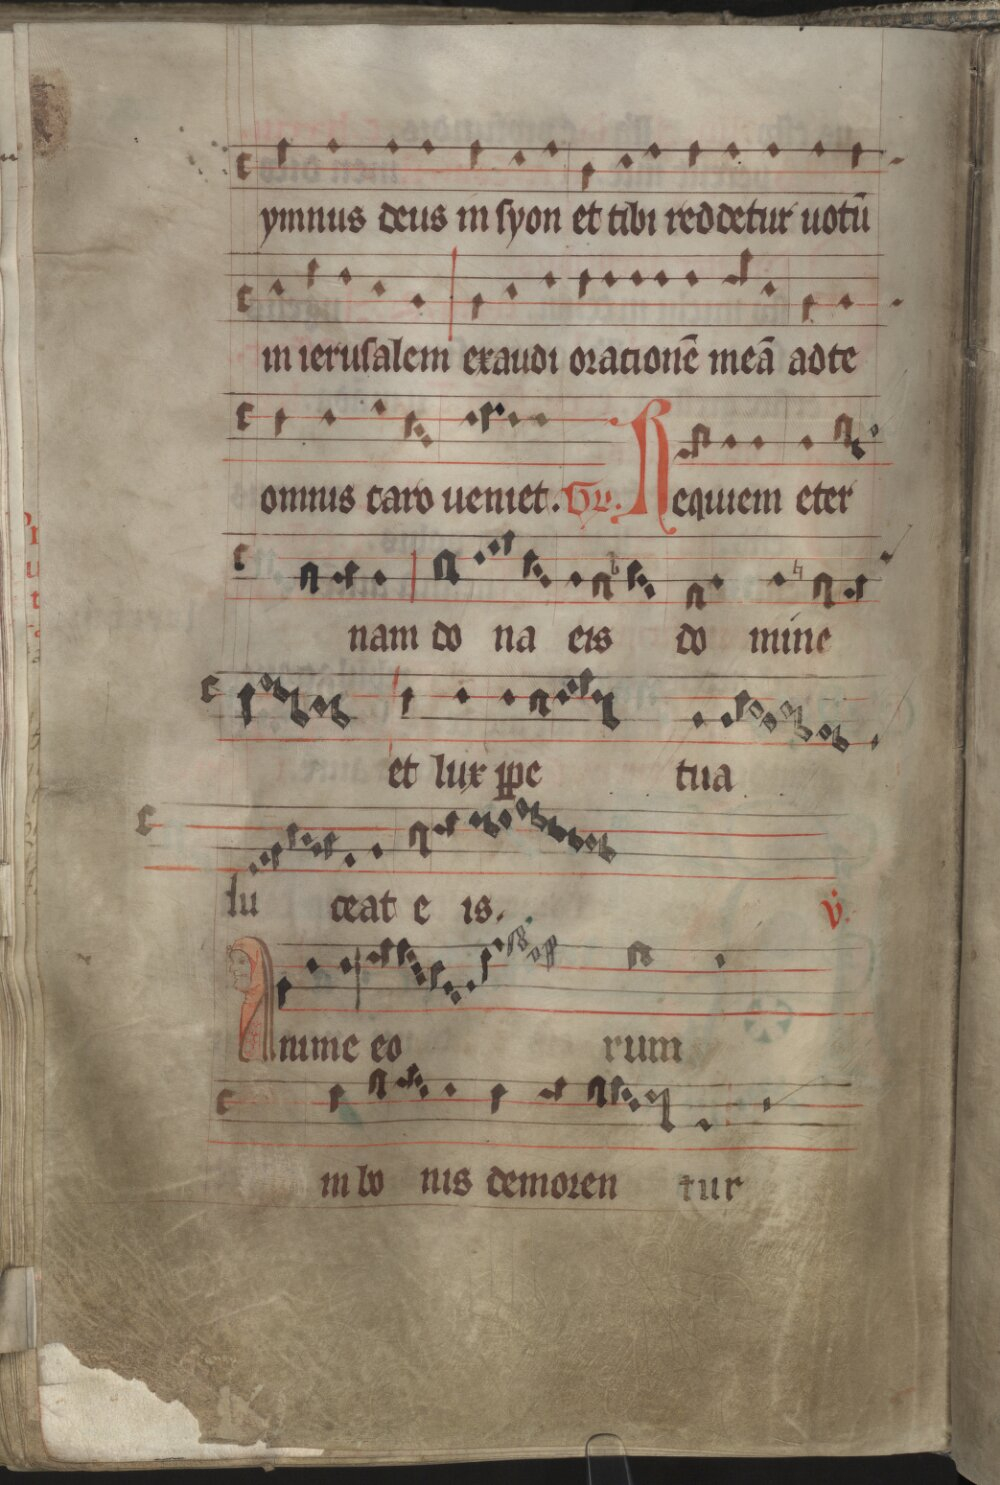 ymnus deus in syon et tibi reddetur uotū
in ierusalem exaudi orationē meā ad te
omnis caro ueniet. Gr. Requiem eter
nam do na eis do mine
et lux ꝑpe tua
lu ceat e is. v̇.
Anime eo rum
in bo nis demoren tur